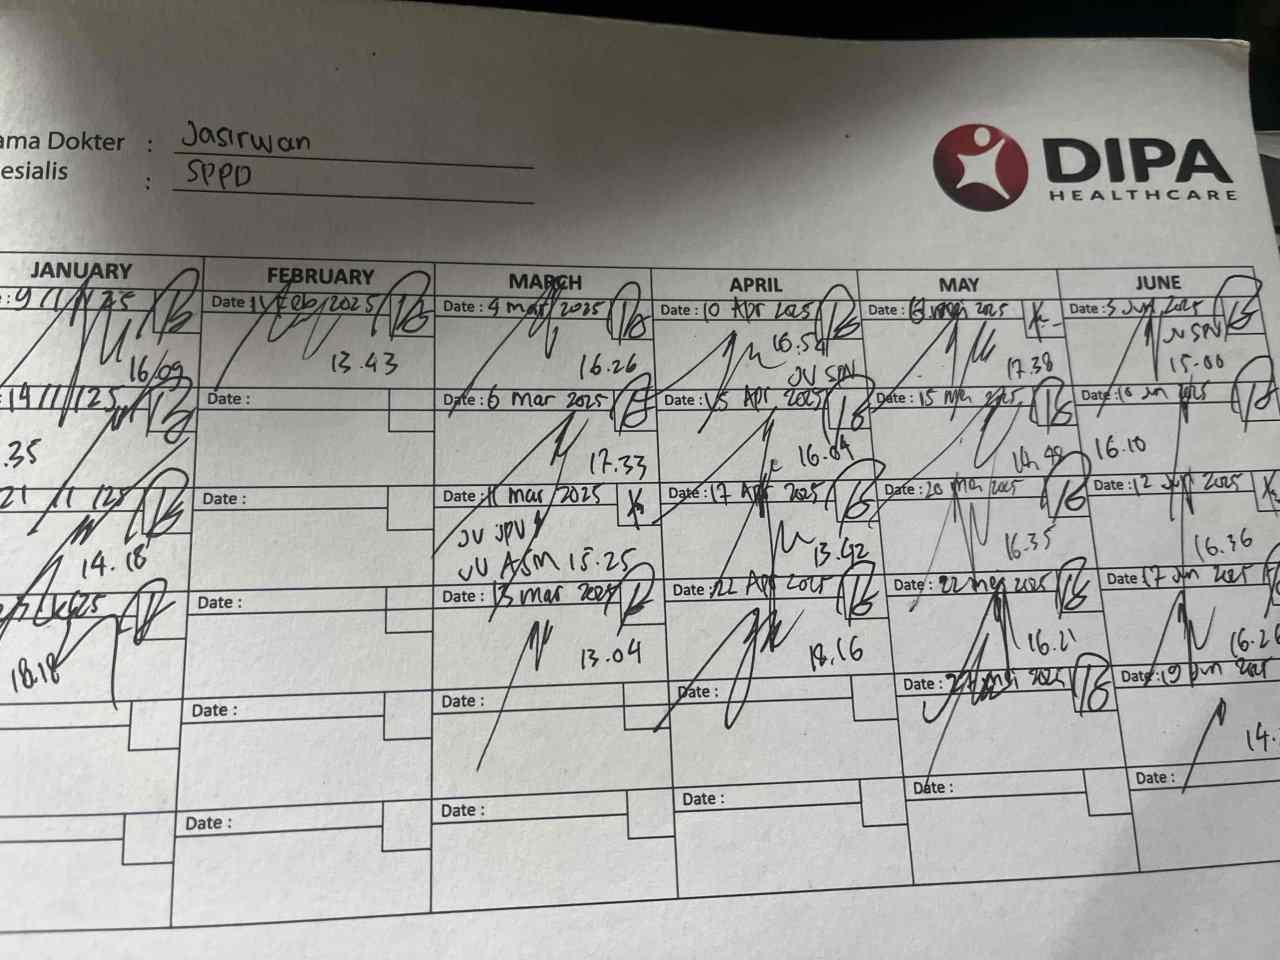 ama Dokter : Jasirwan
esialis : SPPD
DIPA
HEALTHCARE
JANUARY FEBRUARY MARCH APRIL MAY JUNE
: 9 / 1 / 25 Date : Feb 2025 Date : 4 mar 2025 Date : 10 Apr 2025 Date : 2025 Date : 3 Jun 2025
16.09 13.43 16.26 16.5 JV SPV 17.38 JV SPV 15.00
14 / 1 / 25 Date : Date : 6 Mar 2025 Date : 15 Apr 2025 Date : 15 Mei 2025 Date : 10 Jun 2025
.35 17.33 16.04 14.48 16.10
21 / 1 / 25 Date : Date : 11 mar 2025 Date : 17 Apr 2025 Date : 20 Mei 2025 Date : 12 Jun 2025
14.18 JV ASM 15.25 13.42 16.35 16.36
25 Date : Date : 13 mar 2025 Date : 22 Apr 2025 Date : 22 mei 2025 Date 17 Jun 2025
18.18 13.04 18.16 16.21 16.26
Date : Date : Date : Date : mei 2025 Date : 19 Jun 2025
14.
Date : Date : Date : Date : Date :